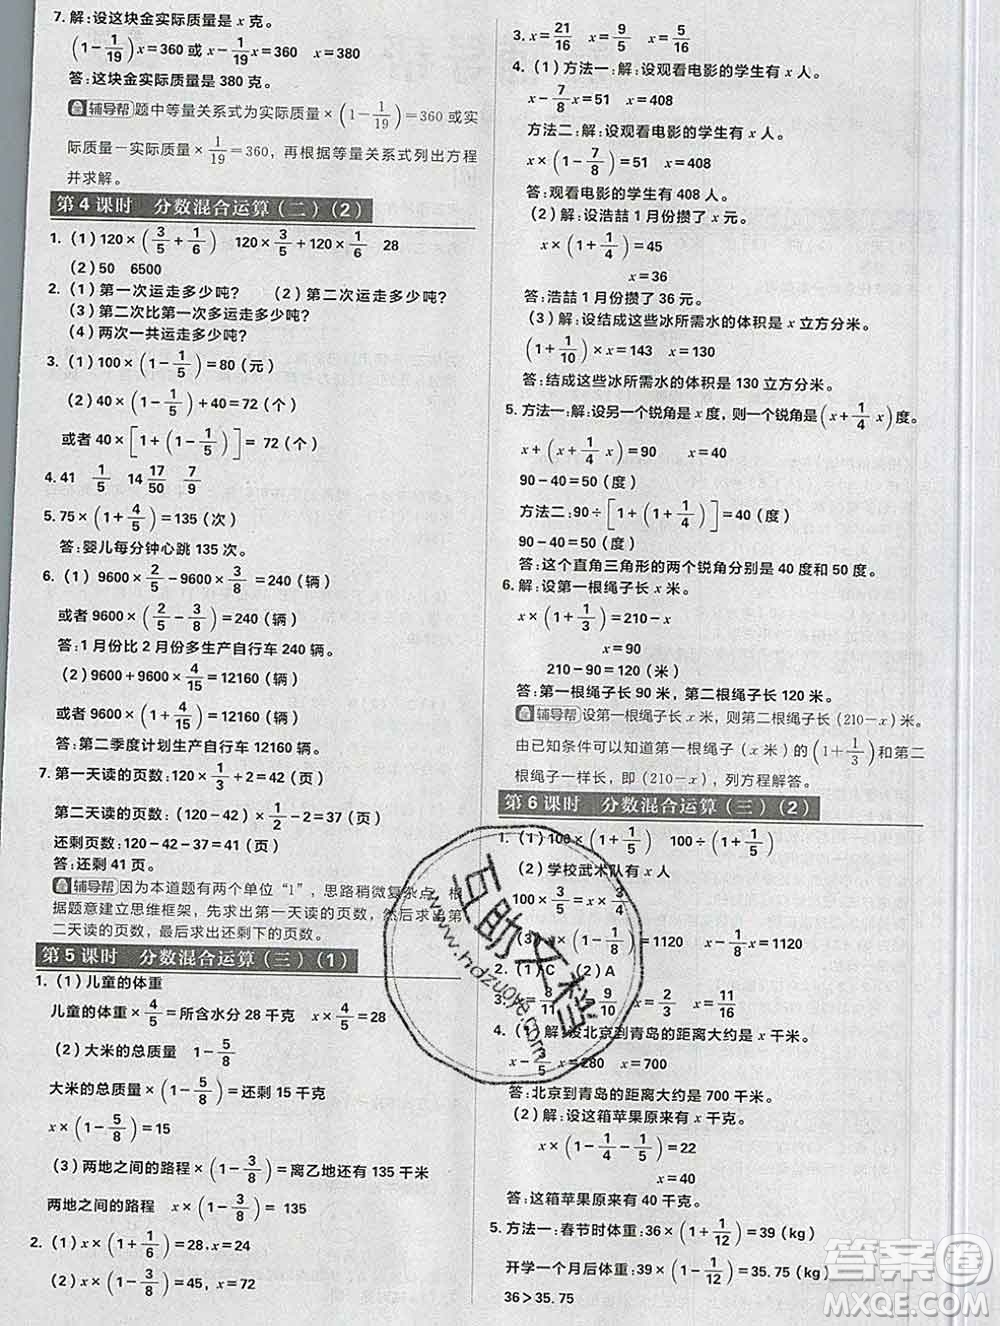 7. 解:设这块金实际质量是 x 克。
(1-1/19)x=360 或 x-1/19x=360 x=380
答:这块金实际质量是 380 克。
辅导帮 题中等量关系式为实际质量×(1-1/19)=360 或实
际质量-实际质量×1/19=360，再根据等量关系式列出方程
并求解。
第 4 课时 分数混合运算(二)(2)
1. (1)120×(3/5+1/6) 120×3/5+120×1/6 28
(2)50 6500
2. (1)第一次运走多少吨? (2)第二次运走多少吨?
(3)第二次比第一次多运走多少吨?
(4)两次一共运走多少吨?
3. (1)100×(1-1/5)=80(元)
(2)40×(1-1/5)+40=72(个)
或者 40×[1+(1-1/5)]= 72(个)
4. 41 1/5 14 17/50 7/9
5. 75×(1+4/5)=135(次)
答:婴儿每分钟心跳 135 次。
6. (1)9600×2/5-9600×3/8=240(辆)
或者 9600×(2/5-3/8)=240(辆)
答:1 月份比 2 月份多生产自行车 240 辆。
(2)9600+9600×4/15=12160(辆)
或者 9600×(1+4/15)=12160(辆)
答:第二季度计划生产自行车 12160 辆。
7. 第一天读的页数:120×1/3+2=42(页)
第二天读的页数:(120-42)×1/2-2=37(页)
还剩页数:120-42-37=41(页)
答:还剩 41 页。
辅导帮 因为本道题有两个单位“1”，思路稍微复杂点，根
据题意建立思维框架，先求出第一天读的页数，然后求出第
二天读的页数，最后求出还剩下的页数。
第 5 课时 分数混合运算(三)(1)
1. (1)儿童的体重
儿童的体重×4/5=所含水分 28 千克 x×4/5=28
(2)大米的总质量 1-5/8
大米的总质量×(1-5/8)=还剩 15 千克
x×(1-5/8)=15
(3)两地之间的路程×(1-3/8)=离乙地还有 135 千米
两地之间的路程 x×(1-3/8)= 135
2. (1)x×(1+1/6)=28，x=24
(2)x×(1-3/8)=45，x=72
3. x=21/16 x=9/5 x=5/16
4. (1)方法一:解:设观看电影的学生有 x 人。
x-7/8x=51 x=408
方法二:解:设观看电影的学生有 x 人。
x×(1-7/8)=51 x=408
答:观看电影的学生有 408 人。
(2)解:设浩喆 1 月份攒了 x 元。
x×(1+1/4)=45
x=36
答:浩喆 1 月份攒了 36 元。
(3)解:设结成这些冰所需水的体积是 x 立方分米。
(1+1/10)×x=143 x=130
答:结成这些冰所需水的体积是 130 立方分米。
5. 方法一:解:设另一个锐角是 x 度，则一个锐角是(x+1/4x)度。
x+(x+1/4x)=90 x=40
90-40=50(度)
方法二:90÷[1+(1+1/4)]=40(度)
90-40=50(度)
答:这个直角三角形的两个锐角分别是 40 度和 50 度。
6. 解:设第一根绳子长 x 米。
x×(1+1/3)=210-x
x=90
210-90=120(米)
答:第一根绳子长 90 米，第二根绳子长 120 米。
辅导帮 设第一根绳子长 x 米，则第二根绳子长(210-x)米。
由已知条件可以知道第一根绳子(x 米)的(1+1/3)和第二
根绳子一样长，即(210-x)，列方程解答。
第 6 课时 分数混合运算(三)(2)
1. (1)100×(1+1/5) 100÷(1+1/5)
(2)学校武术队有 x 人
100×3/5=x×3/4
(3)x×(1-1/8)=1120 x-1/8x=1120
2. (1)C (2)A
3. x=8/9 x=9/10 x=2/3 x=11/16
4. (1)解:设北京到青岛的距离大约是 x 千米。
x-3/5x=280 x=700
答:北京到青岛的距离大约是 700 千米。
(2)解:设这箱苹果原来有 x 千克。
x×(1-1/4-1/5)=22
x=40
答:这箱苹果原来有 40 千克。
5. 方法一:春节时体重:36×(1+1/12)=39(kg)
开学一个月后体重:39×(1-1/12)=35.75(kg)
36>35.75
互助文档
www.hdzuoye.com
答案圈
MXQE.COM